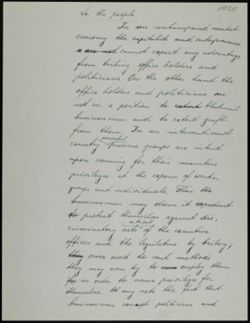 1020
to the people.
In an unhampered market
economy the capitalists and entrepreneurs
cannot expect any advantage
from bribing office holders and
politicians. On the other hand the
office holders and politicians are
not in a position to blackmail
businessmen and to extort graft
from them. In an interventionist
country powerful pressure groups are intent
upon securing for their members
privileges at the expense of weaker
groups and individuals. Then the
businessmen may deem it expedient
to protect themselves against dis-
criminatory acts of the executive
officers and the legislature by bribery;
once used to such methods
they may try to employ them
in order to secure privileges for
themselves. At any rate the fact that
businessmen politicians and